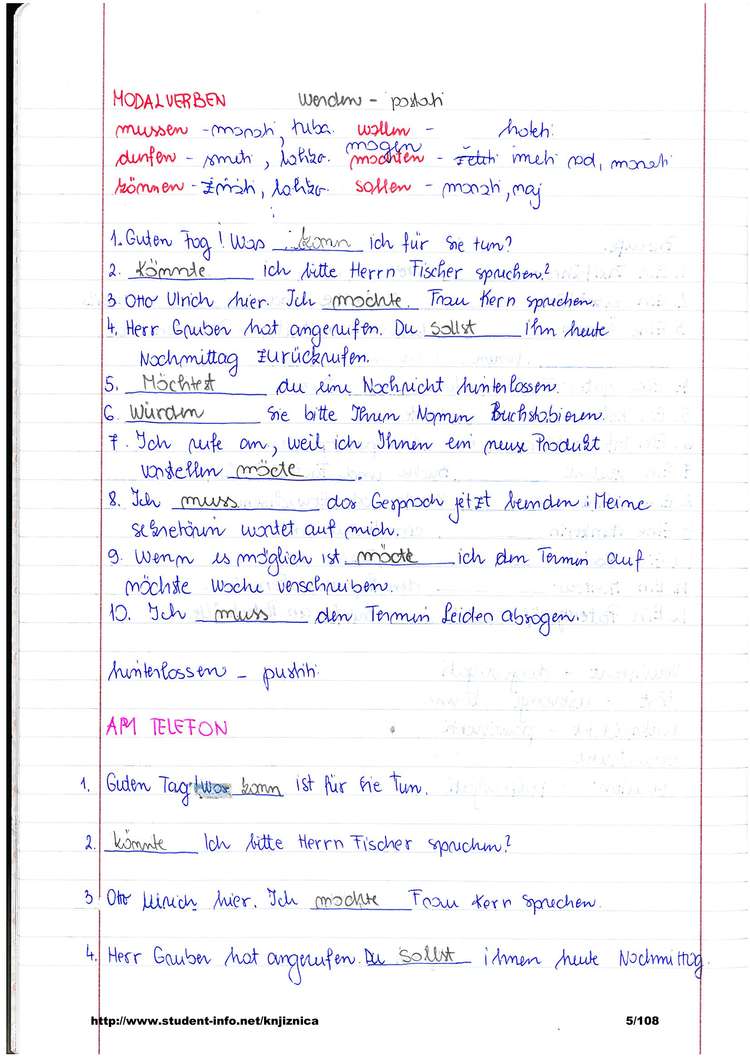 MODALVERBEN werden - postati
mussen - morati, treba. wollen - hoteti
durfen - smeti, lahko. mogen
mochten - imeti rad, marati
können - znati, lahko. sollen - morati, naj
1. Guten Tag! Was kann ich für Sie tun?
2. Könnte ich bitte Herrn Fischer sprechen?
3. Otto Ulrich hier. Ich mochte Frau Kern sprechen.
4. Herr Gruber hat angerufen. Du sollst ihn heute
Nachmittag zurückrufen.
5. Möchtest du eine Nachricht hinterlassen.
6. Würden Sie bitte Ihren Namen Buchstabieren.
7. Ich rufe an, weil ich Ihnen ein neue Produkt
vorstellen möcte.
8. Ich muss das Gesprach jetzt beenden! Meine
sekretärin wartet auf mich.
9. Wenn es möglich ist möcte ich den Termin auf
nächste Woche verschreiben.
10. Ich muss den Termin Leider absagen.
hinterlassen - pustiti
AM TELEFON
1. Guten Tag! was kann ist für Sie Tun.
2. könnte Ich bitte Herrn Fischer sprechen?
3 Otto Ulrich hier. Ich mochte Frau Kern sprechen.
4. Herr Gruber hat angerufen. Du sollst ihnen heute Nachmittag.
http://www.student-info.net/knjiznica 5/108